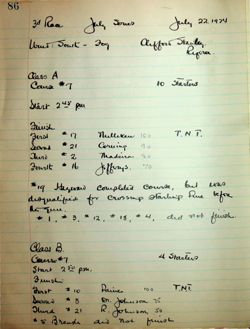 86
3d Race July Series July 22, 1924
Wind: South - Fog Clifford
Class A
Course #7 10 Starters
Start 2 pm
Finish
First #17 100 T.N.T.
Second #21 Corning 90
Third #2 80
Fourth #16 Jeffreys 70
#19 completed course, but was
disqualified for crossing starting line before
the gun.
#1, #3, #12, #15, #4, did not finish
Class B.
Course #7 4 Starters
Start 2 pm.
Finish
First #10 Paine 100 T.N.T
Second #8 Johnson 75
Third #21 R. Johnson 50
#5 did not finish